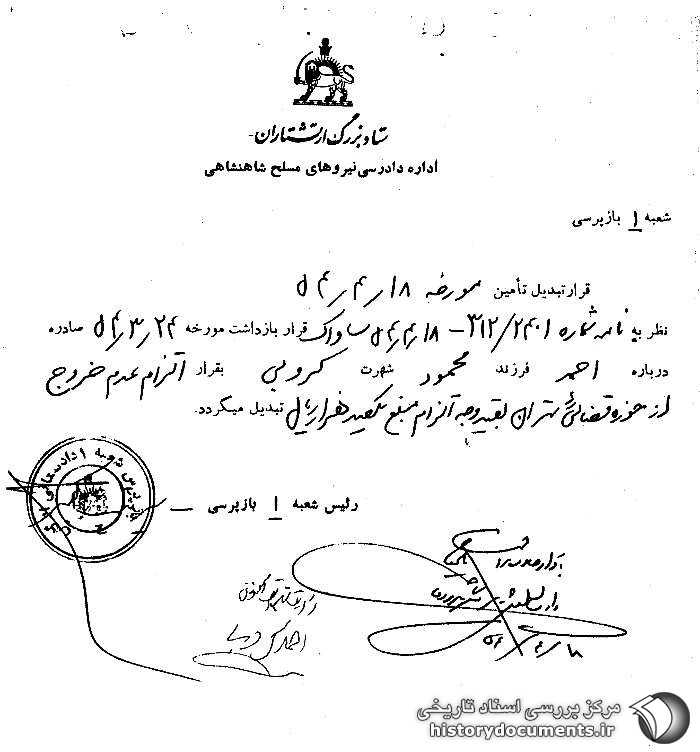 ستاد بزرگ ارتشتاران
اداره دادرسی نیروهای مسلح شاهنشاهی
شعبه ۱ بازپرسی
قرار تبدیل تأمین مورخه ۱۸ر۴ر۵۴
نظر به نامه شماره ۳۱۲/۲۴۰۱ – ۱۸ر۴ر۵۴ ساواک قرار بازداشت مورخه ۲۴ر۳ر۵۴ صادره
درباره احمد فرزند محمود شهرت کروبی بقرار التزام عدم خروج
از حوزه قضائی تهران بقید وجه التزام مبلغ یکصد هزار ریال تبدیل میگردد.
رئیس شعبه ۱ بازپرسی
احمد کروبی
مرکز بررسی اسناد تاریخی
historydocuments.ir